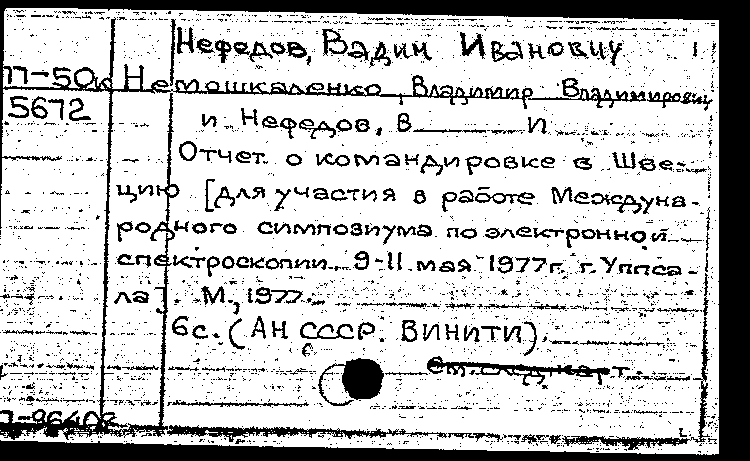 Нефедов, Вадим Иванович
П-50к Немошкаленко, Владимир Владимирович
5672
и Нефедов, В И
Отчет о командировке в Шве-
цию [для участия в работе Междуна-
родного симпозиума по электронной
спектроскопии. 9-11 мая 1977г. г. Уппса-
ла]. М., 1977.
6с. (АН СССР. ВИНИТИ).
см. след. карт.